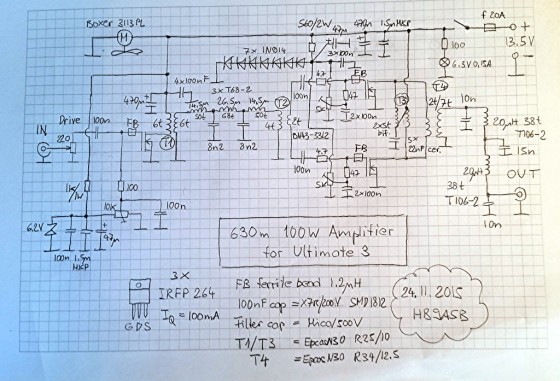 Boxer 3113PL
M
560/2W
47µ
470µ
1.5m MKP
f 20A
+
13.5V
-
7x 1N914
3x100n
100
6.3V 0.15A
4x100nF
3x T68-2
470µ
14.5m
26.5m
14.5m
50t
68t
50t
8n2
8n2
100n
4.7
FB
47
2x100n
5k
T2
4t
2t
BN43-3312
T3
2x5t
bif.
T4
2t/7t
5x
22nF
cer.
10n
20µH 38t
T106-2
15n
20µH
OUT
38t
T106-2
10n
Drive
IN
220
100n
FB
6t
6t
T1
1k/
1W
100
10k
100n
6.2V
100n
1.5m
MKP
47µ
100n
4.7
FB
5k
47
2x100n
630m 100W Amplifier
for Ultimate 3
3x
IRFP 264
IQ = 100mA
G D S
FB ferrite bead 1.2µH
100nF cap = X7R/200V SMD 1812
Filter cap = Mica/500V
T1/T3 = Epcos N30 R25/10
T4 = Epcos N30 R34/12.5
24.11.2015
HB9ASB